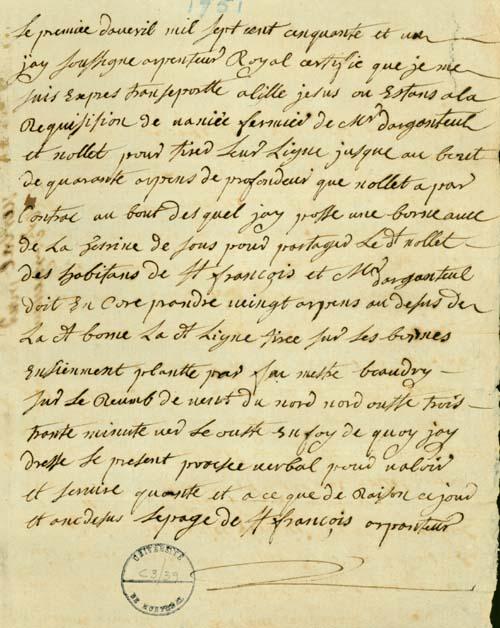 1751
Le premiee daueril mil sept cent cinquante et un
jay soussigne arpenteur Royal certifie que je me
suis Expres transportte a lille jesus ou Estans a la
Requisision de uaniée fermiér de Mr darganteul
et nollet pour tired Leur Ligne jusque au bout
de quarante arpens de profondeur que nollet a par
Contrac au bout des quel jay posse une borne auec
de La terrine de sous pour partager Le dt nollet
des habitans de St francois et Mr dargenteul
doit En Core prandre ueingt arpens au desus de
La dt borne La dt Ligne tiree sur ses bornes
Ensiennment plantte par feu mestre beaudry
sur Le Reumb de uent du nord nord ousste trois
trante minute uer Le ouste En foy de quoy jay
dresse Le present prosee uerbal pour ualoir
et seruire quante et a ce que de Raison ce jour
et an cy desus Lepage de St francois arpanteur
C3/39
UNIVERSITE
DE MONTREAL